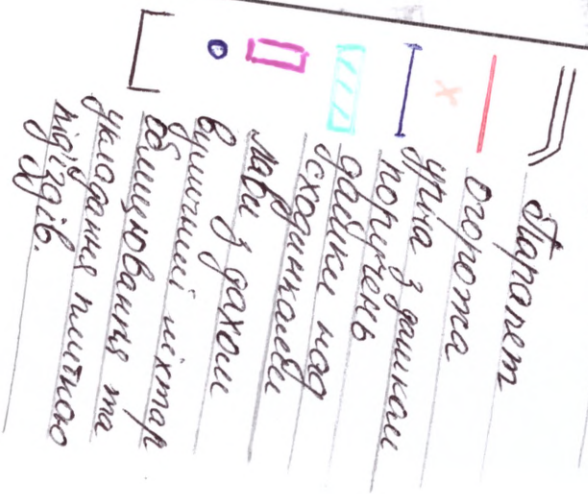 Парапет
огорожа
урна з дашком
поручень
дашки над
сходинками
лави з дахом
вуличний ліхтар
облицювання та
укладання плиткою
під'їздів.